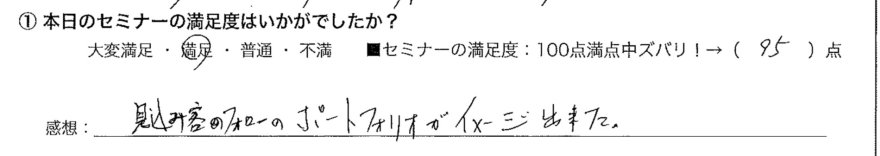 ① 本日のセミナーの満足度はいかがでしたか？
大変満足 ・ 満足 ・ 普通 ・ 不満 ■セミナーの満足度：100点満点中ズバリ！→（ 95 ）点
感想： 見込み客のフォローのポートフォリオがイメージ出来た。